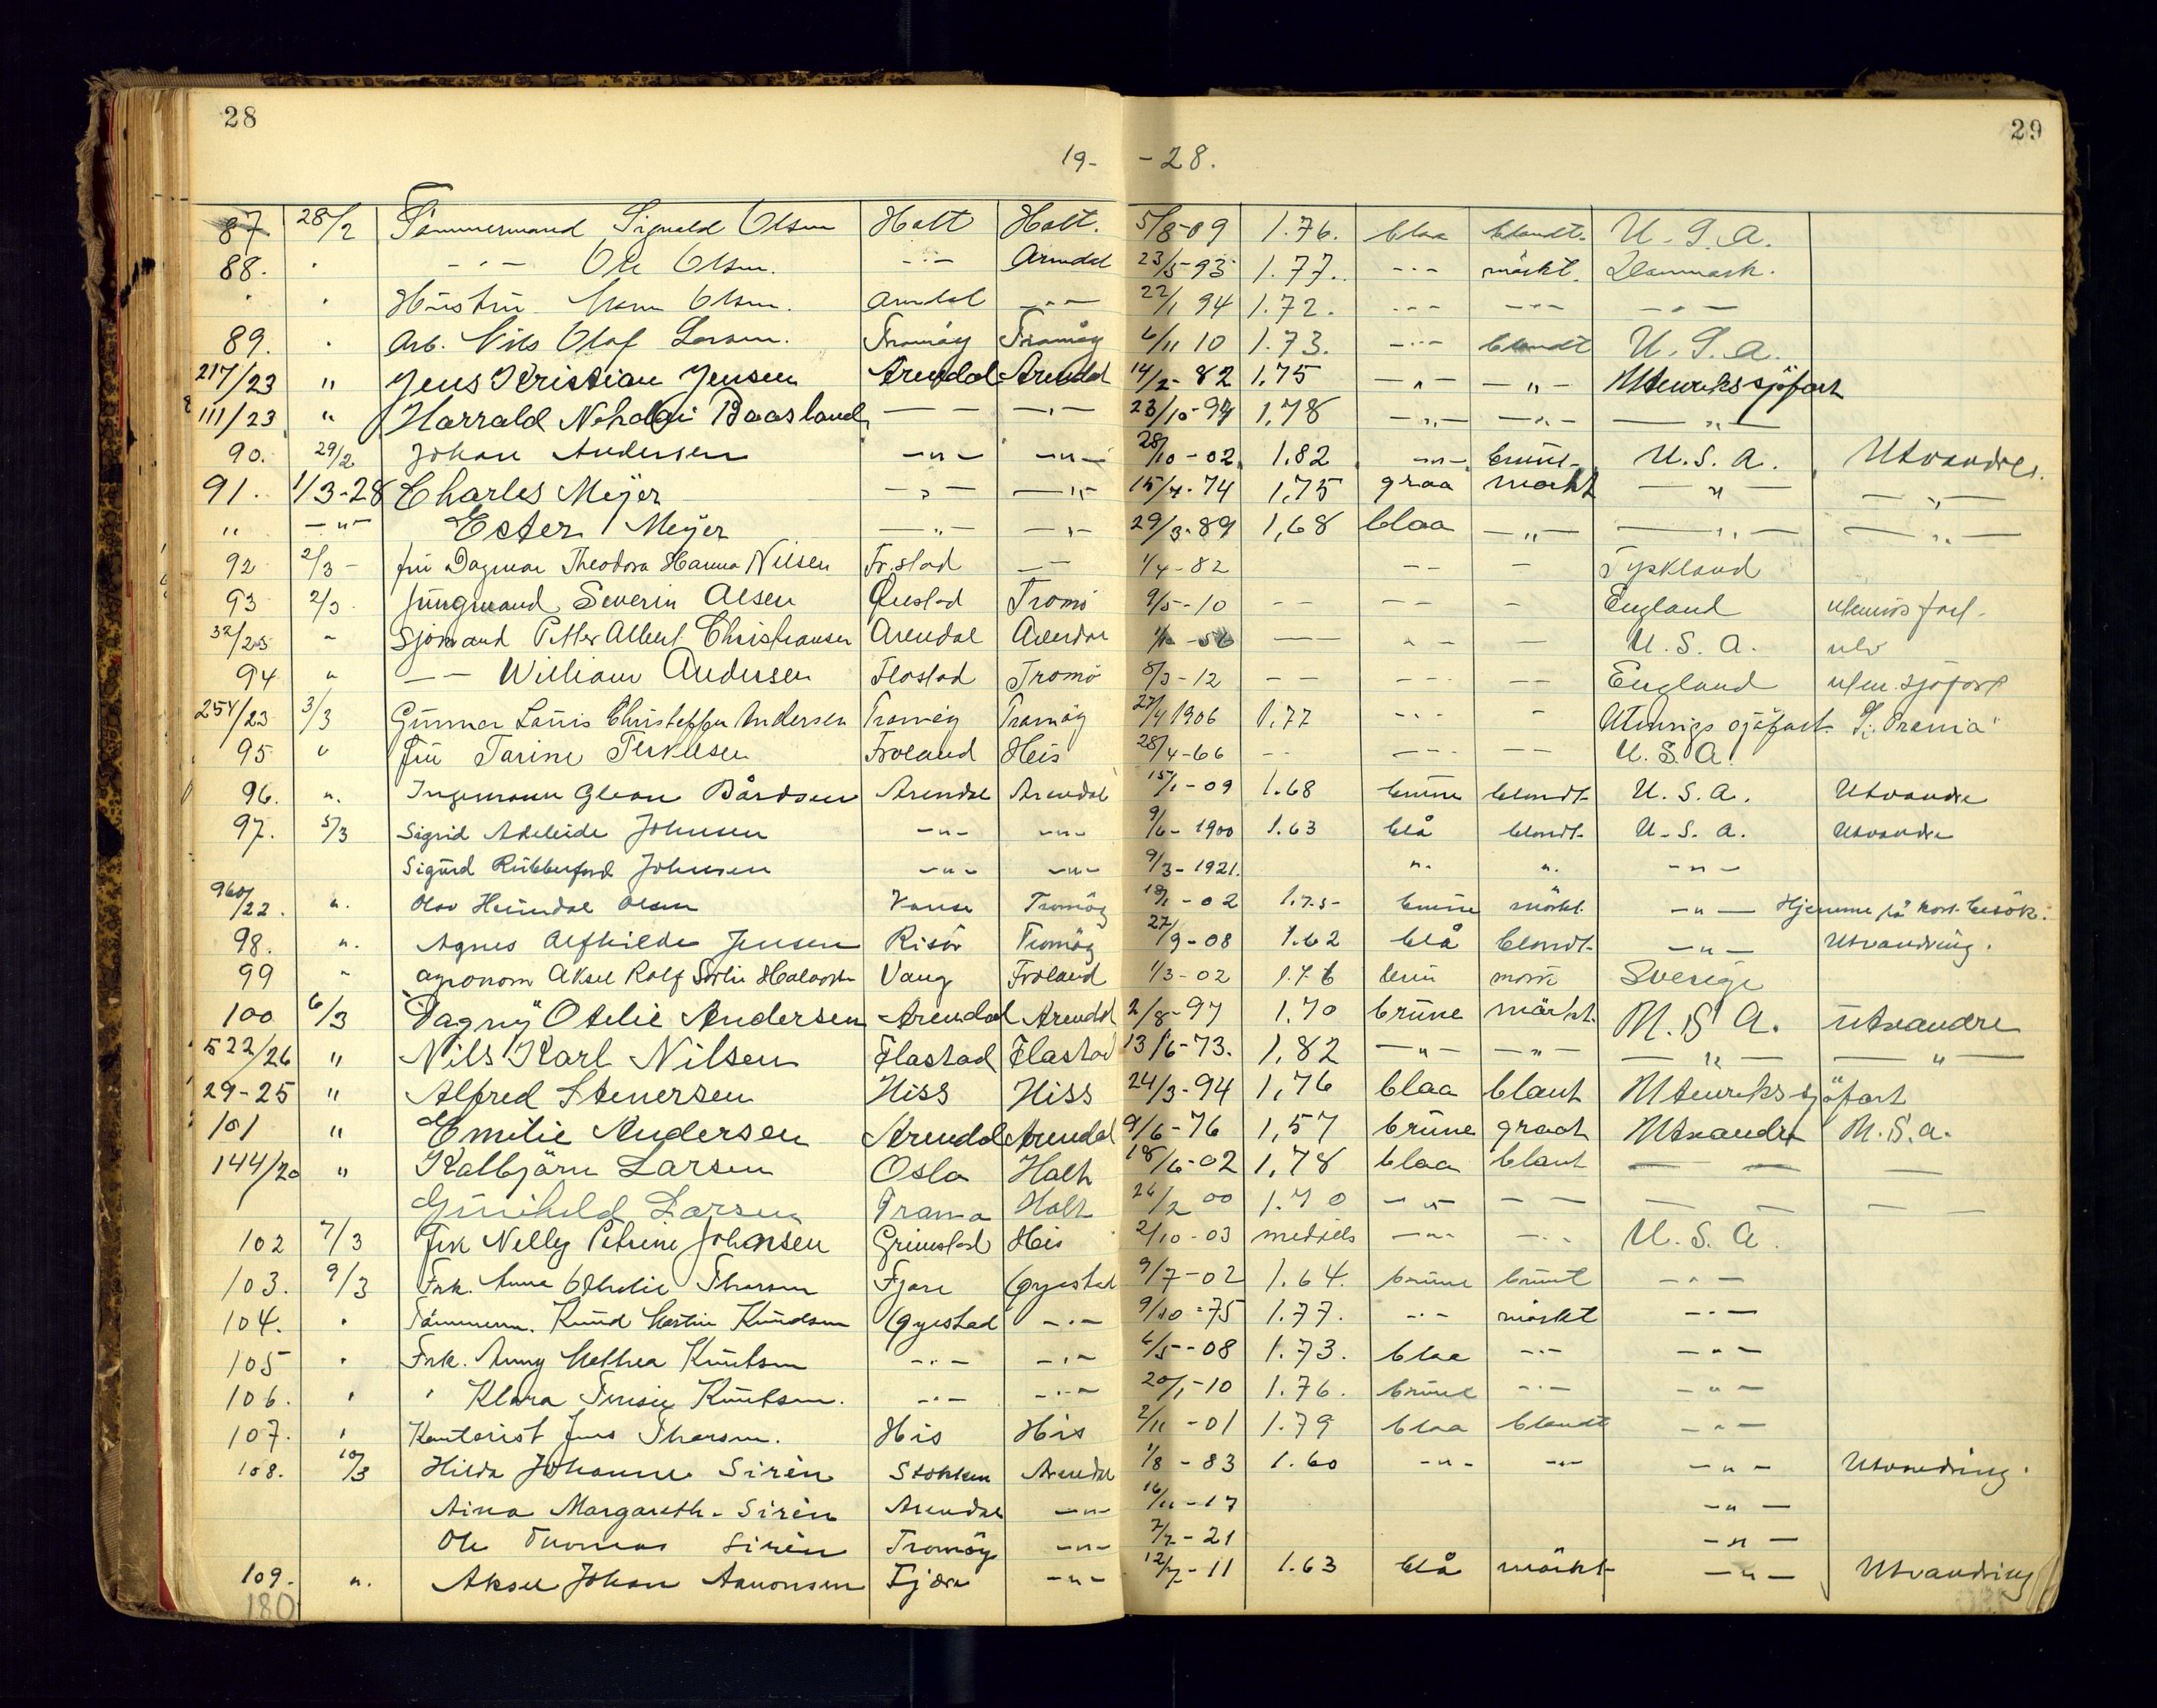 28
29
19- -28.
87 28/2 Tömmermand Sigvald Olsen Holt Holt. 5/8-09 1.76. blaa blondt. U.S.A.
88. " -"- Ole Olsen. -"- Arendal 23/5-93 1.77. -"- mörkt. Danmark.
" " Hustru Olsen. Arendal -"- 22/1 94 1.72. -"- -"- -"-
89. " Arb. Nils Olaf Larsen. Tromöy Tromöy 6/11 10 1.73. -"- blondt U.S.A.
217/23 " Jens Kristian Jensen Arendal Arendal 14/2-82 1,75 -"- -"- Utenrikssjöfart
111/23 " Harrald Nikolai Baasland -"- -"- 23/10-94 1,78 -"- -"- -"-
90. 29/2 Johan Andersen -"- -"- 28/10-02. 1.82 -"- brune U.S.A. Utvandre.
91. 1/3-28 Charles Meyer -"- -"- 15/7-74 1,75 graa mörkt -"- -"-
" -"- Ester Meyer -"- -"- 29/3-89 1,68 blaa -"- -"- -"-
92 2/3- fru Dagmar Theodora Hanna Nilsen Fr.stad -- 1/4-82 -- - Tyskland
93 2/3. Jungmand Severin Olsen Öiestad Tromö 9/5-10 -- -- - England utenrigsfart.
32/25 " Sjömand Petter Albert Christiansen Arendal Arendal -56 -- -- - U.S.A. utv
94 " -- William Andersen Flostad Tromö 8/3-12 -- -- -- England uten. sjöfart
254/23 3/3 Gunnar Louis Christoffer Andersen Tromöy Tromöy 27/4 1906 1,77 -- - Utenrigs sjöfart
95 " fru Tarine Terkelsen Froland His 28/4-66 -- -- -- U.S.A.
96. ". Ingemann Gleon Bårdsen Arendal Arendal 15/1-09 1.68 brune blondt U.S.A. Utvandre
97. 5/3 Sigrid Adeleide Johnsen -"- -"- 9/6-1900 1.63 blå blondt. U.S.A. Utvandre
Sigurd Rübberford Johnsen -"- -"- 9/3-1921. ". ". -"-
960/22. ". Olav Heimdal Olsen Vanse Tromöy 18/1-02 1.75- brune mörkt. -"- Hjemme på kort besök.
98. ". Agnes Alfhilde Jensen Risör Tromöy 27/9-08 1.62 blå blondt -"- Utvandring.
99 " agronom Aksel Rolf Halvorsen Vang Froland 1/3-02 1.76 brun mörk Sverige
100 6/3 Dagny Otelie Andersen Arendal Arendal 2/8-97 1,70 brune mörkt. U.S.A. Utvandre
522/26 " Nils Karl Nilsen Flastad Flastad 13/6-73. 1,82 -"- -"- -"- -"-
29-25 " Alfred Stenersen Hiss Hiss 24/3-94 1,76 blaa blont Utenrikssjöfart
101 " Emilie Andersen Arendal Arendal 9/6-76 1,57 brune graat Utvandre U.S.A.
144/20 " Kolbjörn Larsen Oslo Holt 18/6-02 1,78 blaa blont -- --
Gunhild Larsen Tromø Holt 26/2 00 1.70 -"- -- -- --
102 7/3 Frk Nelly Petrine Johansen Grimstad His 2/10-03 middels -"- -"- U.S.A.
103. 9/3 Frk. Anna Othelie Thorsen Fjære Öyestad 9/7-02 1.64. brune brunt -"-
104. " Tömmerm. Knud Martin Knudsen Öyestad -"- 9/10-75 1.77. -"- mörkt -"-
105 " Frk. Anny Mathea Knutsen -"- -"- 6/5-08 1.73. blaa -"- -"-
106. " " Klara Knutsen. -"- -"- 20/1-10 1.76. brune -"- -"-
107. " Kontorist Jens Thorsen. His His 2/11-01 1.79 blaa blondt -"-
108. 10/3 Hilda Johanne Sirèn Stokken Arendal 1/8-83 1.60 -"- -"- -"- Utvandring.
Aina Margareth. Sirèn Arendal -"- 16/11-17 -"-
Ole Thomas Sirèn Tromöy -"- 7/7-21 -"-
109. ". Aksel Johan Aanonsen Fjære -"- 12/7-11 1.63 blå mörkt -"- Utvandring
180